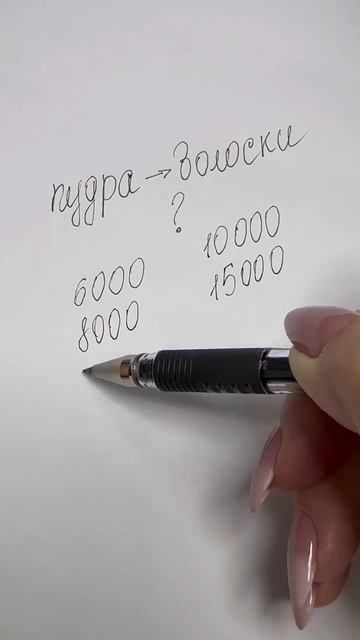 пудра → Волоски
?
6000 10000
8000 15000